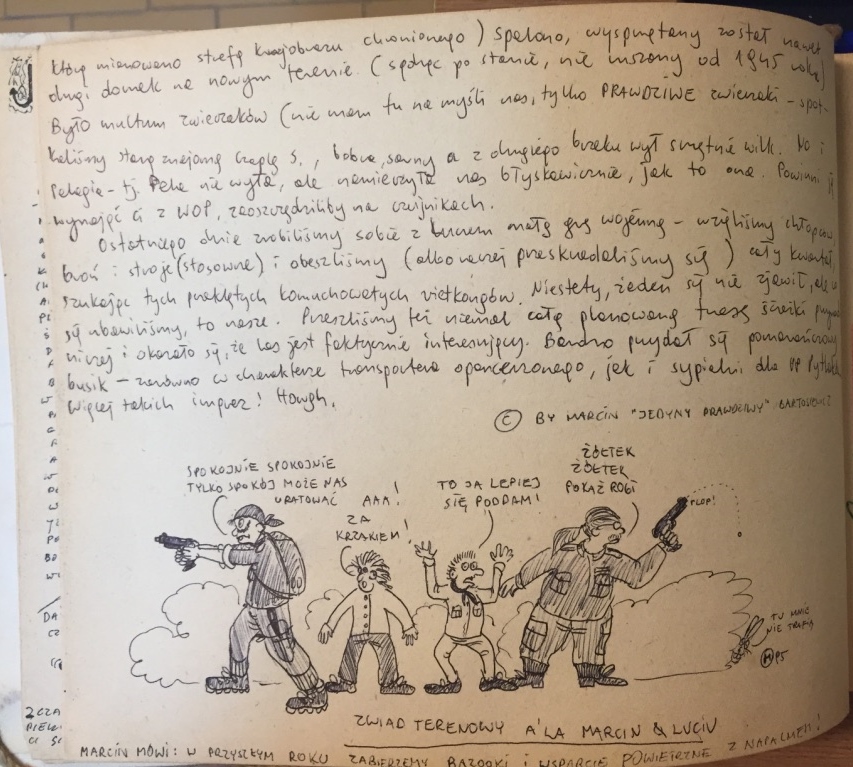 którą mianowano strefą krajobrazu chronionego) spalono, wysprzątany został nawet
drugi domek na nowym terenie. (sądząc po stanie, nie ruszany od 1945 roku)
Było multum zwierzaków (nie mam tu na myśli nas, tylko PRAWDZIWE zwierzaki - spot-
kaliśmy starą znajomą czaplę s., bobra, sarny a z drugiego brzegu wył smętnie wilk. No i
Pelagia - tj. Pela nie wyła, ale namierzyła nas błyskawicznie, jak to ona. Powinni ją
wynająć ci z WOP, zaoszczędziliby na czujnikach.
Ostatniego dnia zrobiliśmy sobie z małą grę wojenną - wzięliśmy chłopców,
broń i stroje (stosowne) i obeszliśmy (albo raczej przeskradaliśmy się) cały kwartał,
szukając tych przeklętych komuchowatych vietkongów. Niestety, żaden się nie zjawił, ale
się ubawiliśmy, to nasze. Przeszliśmy też niemal całą planowaną trasę ścieżki
i okazało się, że las jest faktycznie interesujący. Bardzo przydał się pomarańczowy
busik - zarówno w charakterze transportera opancerzonego, jak i sypialni dla
Więcej takich imprez! Howgh.
© BY MARCIN "JEDYNY PRAWDZIWY"
SPOKOJNIE SPOKOJNIE
TYLKO SPOKÓJ MOŻE NAS
URATOWAĆ
AAA!
ZA
KRZAKIEM!
TO JA LEPIEJ
SIĘ PODDAM!
ŻÓŁTEK
ŻÓŁTEK
POKAŻ ROGI
PLOP!
TU MNIE
NIE TRAFIĄ
M 95
ZWIAD TERENOWY A'LA MARCIN & LUCIU
MARCIN MÓWI: W PRZYSZŁYM ROKU ZABIERZEMY BAZOOKI I WSPARCIE POWIETRZNE Z NAPALMEM!